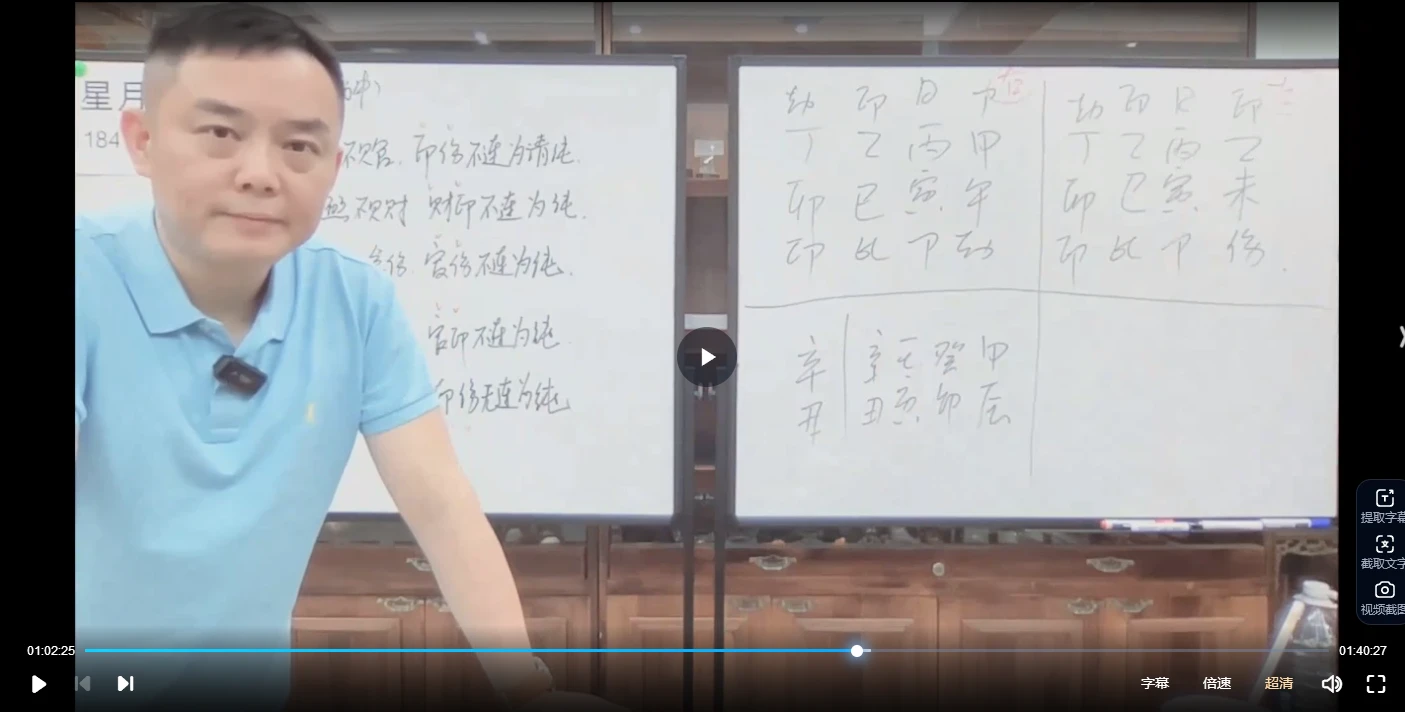 星月
184
不见官.印伤不连为清纯.
不见财 财印不连为纯.
食伤.官伤不连为纯.
官印不连为纯.
印伤无连为纯
劫 印 日 卩
丁 乙 丙 甲
卯 巳 寅 午
印 比 卩 劫
劫 印 日 印
丁 乙 丙 乙
卯 巳 寅 未
印 比 卩 伤.
辛 辛 壬 癸 甲
丑 丑 亥 卯 辰
提取字幕
截取文字
视频截图
01:02:25
01:40:27
字幕 倍速 超清